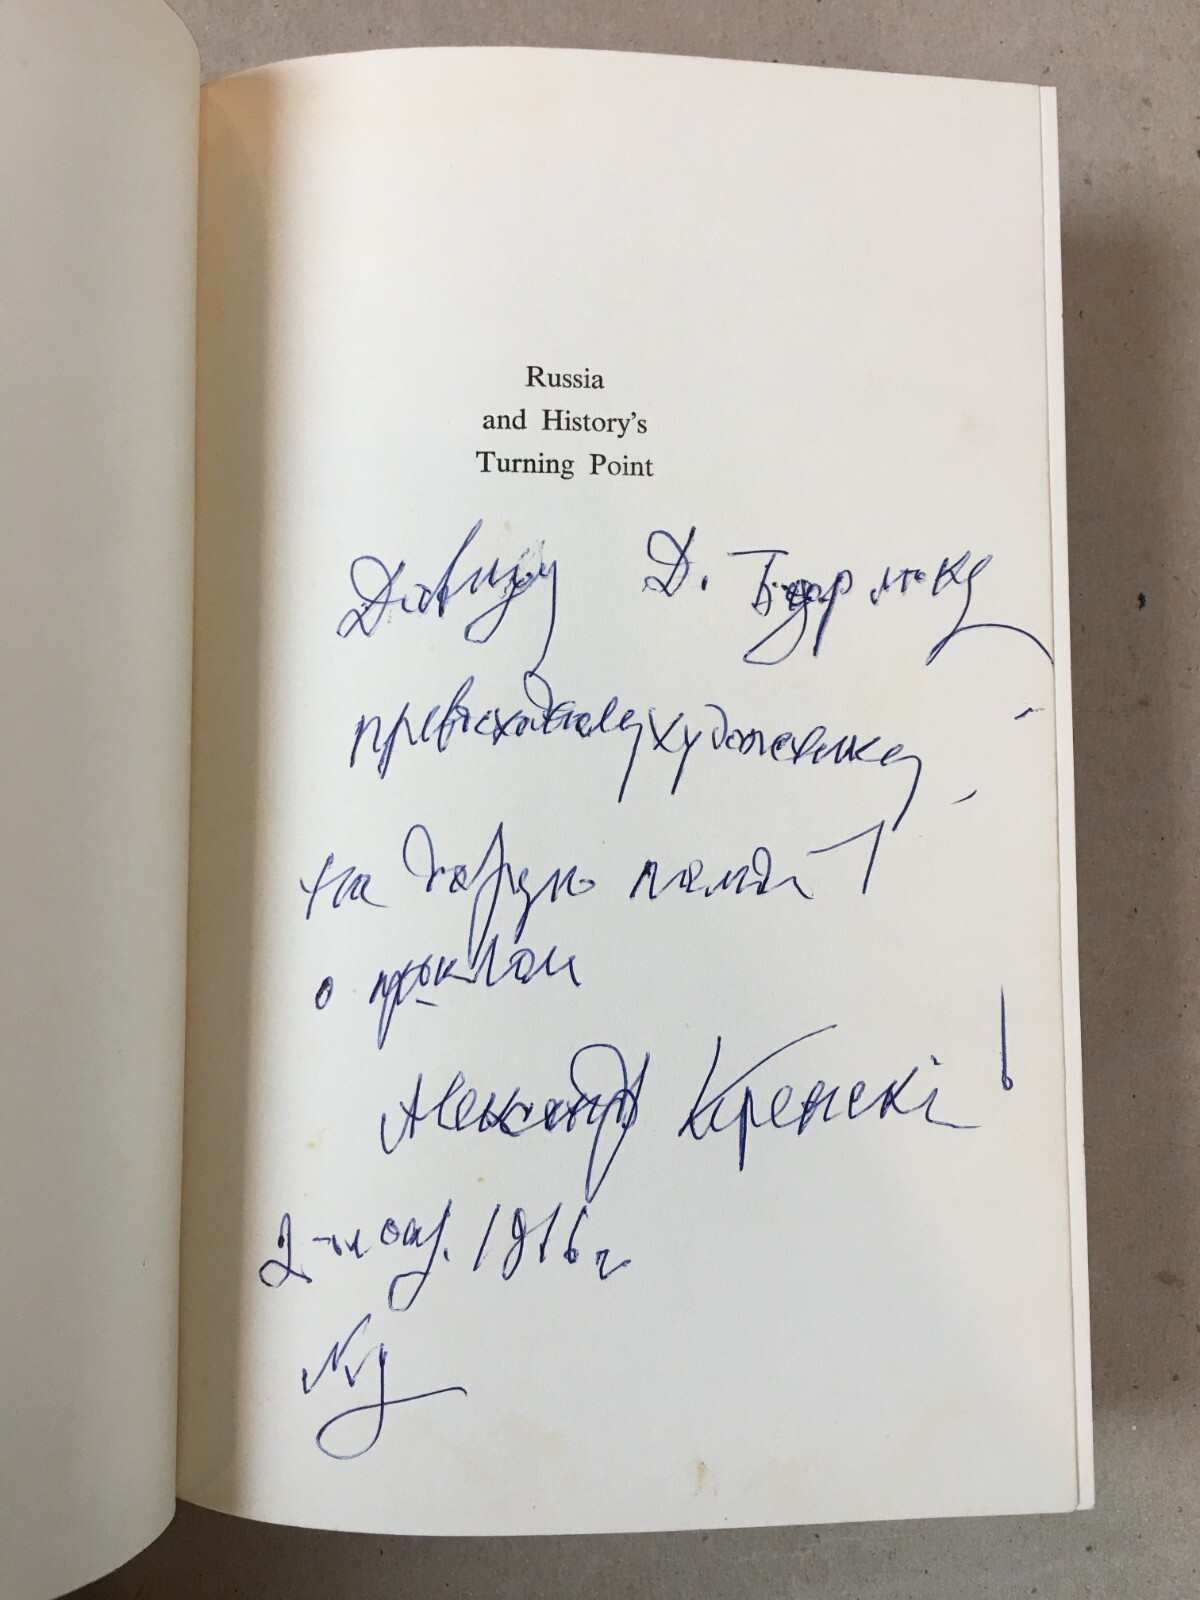 Russia
and History's
Turning Point
Давиду Д. Бурлюку
превосходному художнику
на добрую память
о
Александр Керенскi!
1916 г
NY